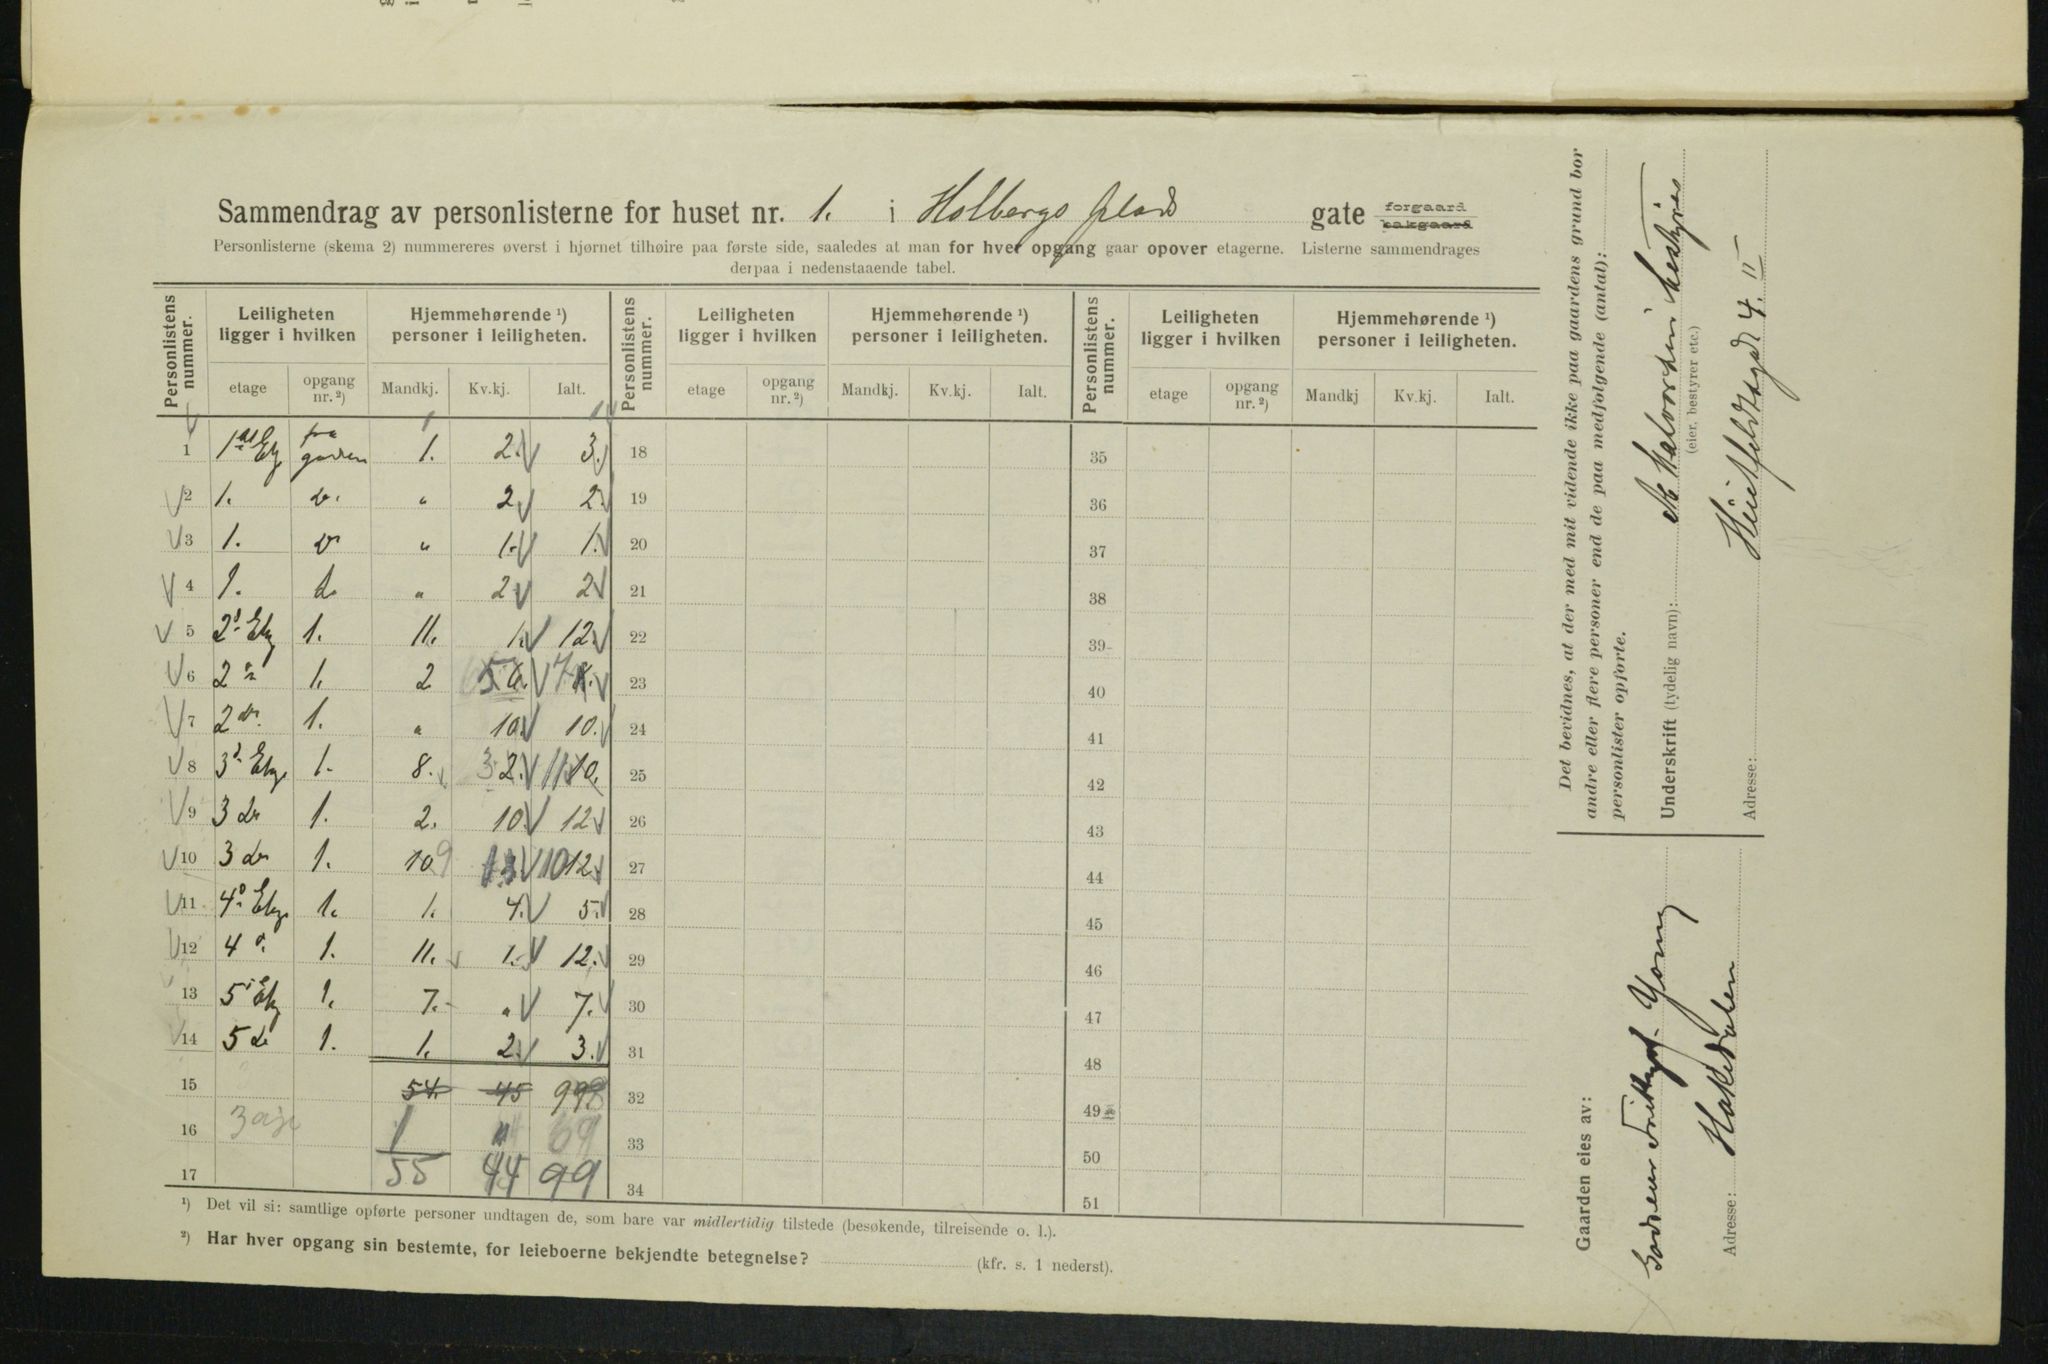 Sammendrag av personlisterne for huset nr. 1. i Holbergs plads gate forgaard bakgaard
Personlisterne (skema 2) nummereres øverst i hjørnet tilhøire paa første side, saaledes at man for hver opgang gaar opover etagerne. Listerne sammendrages
derpaa i nedenstaaende tabel.
Personlistens nummer. Leiligheten ligger i hvilken Hjemmehørende ¹) personer i leiligheten. Personlistens nummer. Leiligheten ligger i hvilken Hjemmehørende ¹) personer i leiligheten. Personlistens nummer. Leiligheten ligger i hvilken Hjemmehørende ¹) personer i leiligheten.
etage opgang nr. ²) Mandkj. Kv.kj. Ialt. etage opgang nr. ²) Mandkj. Kv.kj. Ialt. etage opgang nr. ²) Mandkj Kv.kj. Ialt.
1 1ste Etg fra gaarden 1. 2. 3. 18 35
2 1. do. " 2 2. 19 36
3 1. do " 1. 1. 20 37
4 1. do " 2 2 21 38
5 2d Etg 1. 11. 1. 12. 22 39
6 2 " 1. 2 5 6. 7 8. 23 40
7 2 do. 1. " 10. 10. 24 41
8 3d Etg. 1. 8. 3 2. 11 10. 25 42
9 3 do 1. 2. 10. 12 26 43
10 3 do 1. 10 9 1 10 12. 27 44
11 4d Etg. 1. 1. 4. 5. 28 45
12 4 d. 1. 11. 1. 12. 29 46
13 5 Etg 1. 7. " 7. 30 47
14 5 do 1. 1. 2. 3. 31 48
15 54. 45 99 32 49
16 1 33 50
17 55 44 99 34 51
¹) Det vil si: samtlige opførte personer undtagen de, som bare var midlertidig tilstede (besøkende, tilreisende o. l.).
²) Har hver opgang sin bestemte, for leieboerne bekjendte betegnelse? (kfr. s. 1 nederst).
Det bevidnes, at der med mit vidende ikke paa gaardens grund bor
andre eller flere personer end de paa medfølgende (antal):
personlister opførte.
Underskrift (tydelig navn): Halvorsen bestyrer
(eier, bestyrer etc.)
Adresse: Huitfeldtsgd 4. II
Gaarden eies av: Young
Adresse: Hakedalen